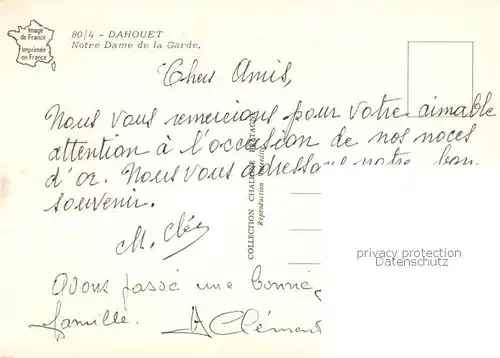 Image
de France
Imprimée
en France
80/4 - DAHOUET
Notre Dame de la Garde.
Chers Amis,
Nous vous remercions pour votre aimable
attention à l'occasion de nos noces
d'or. Nous vous adressons notre bon
souvenir.
M. Clé
Avons passé une bonne
famille. A Clément
COLLECTION
Reproduction
privacy protection
Datenschutz